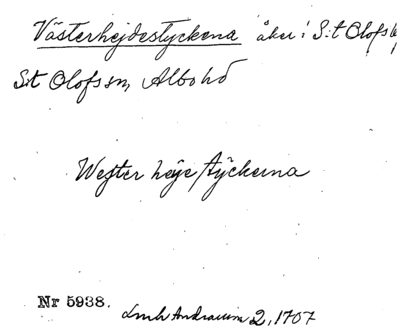 Västerhejdestyckena åker i S:t Olofs
S:t Olofs sn, Albo hd
Wester heÿe stÿckerna
Nr 5938.
Lmh Andrarum 2, 1707